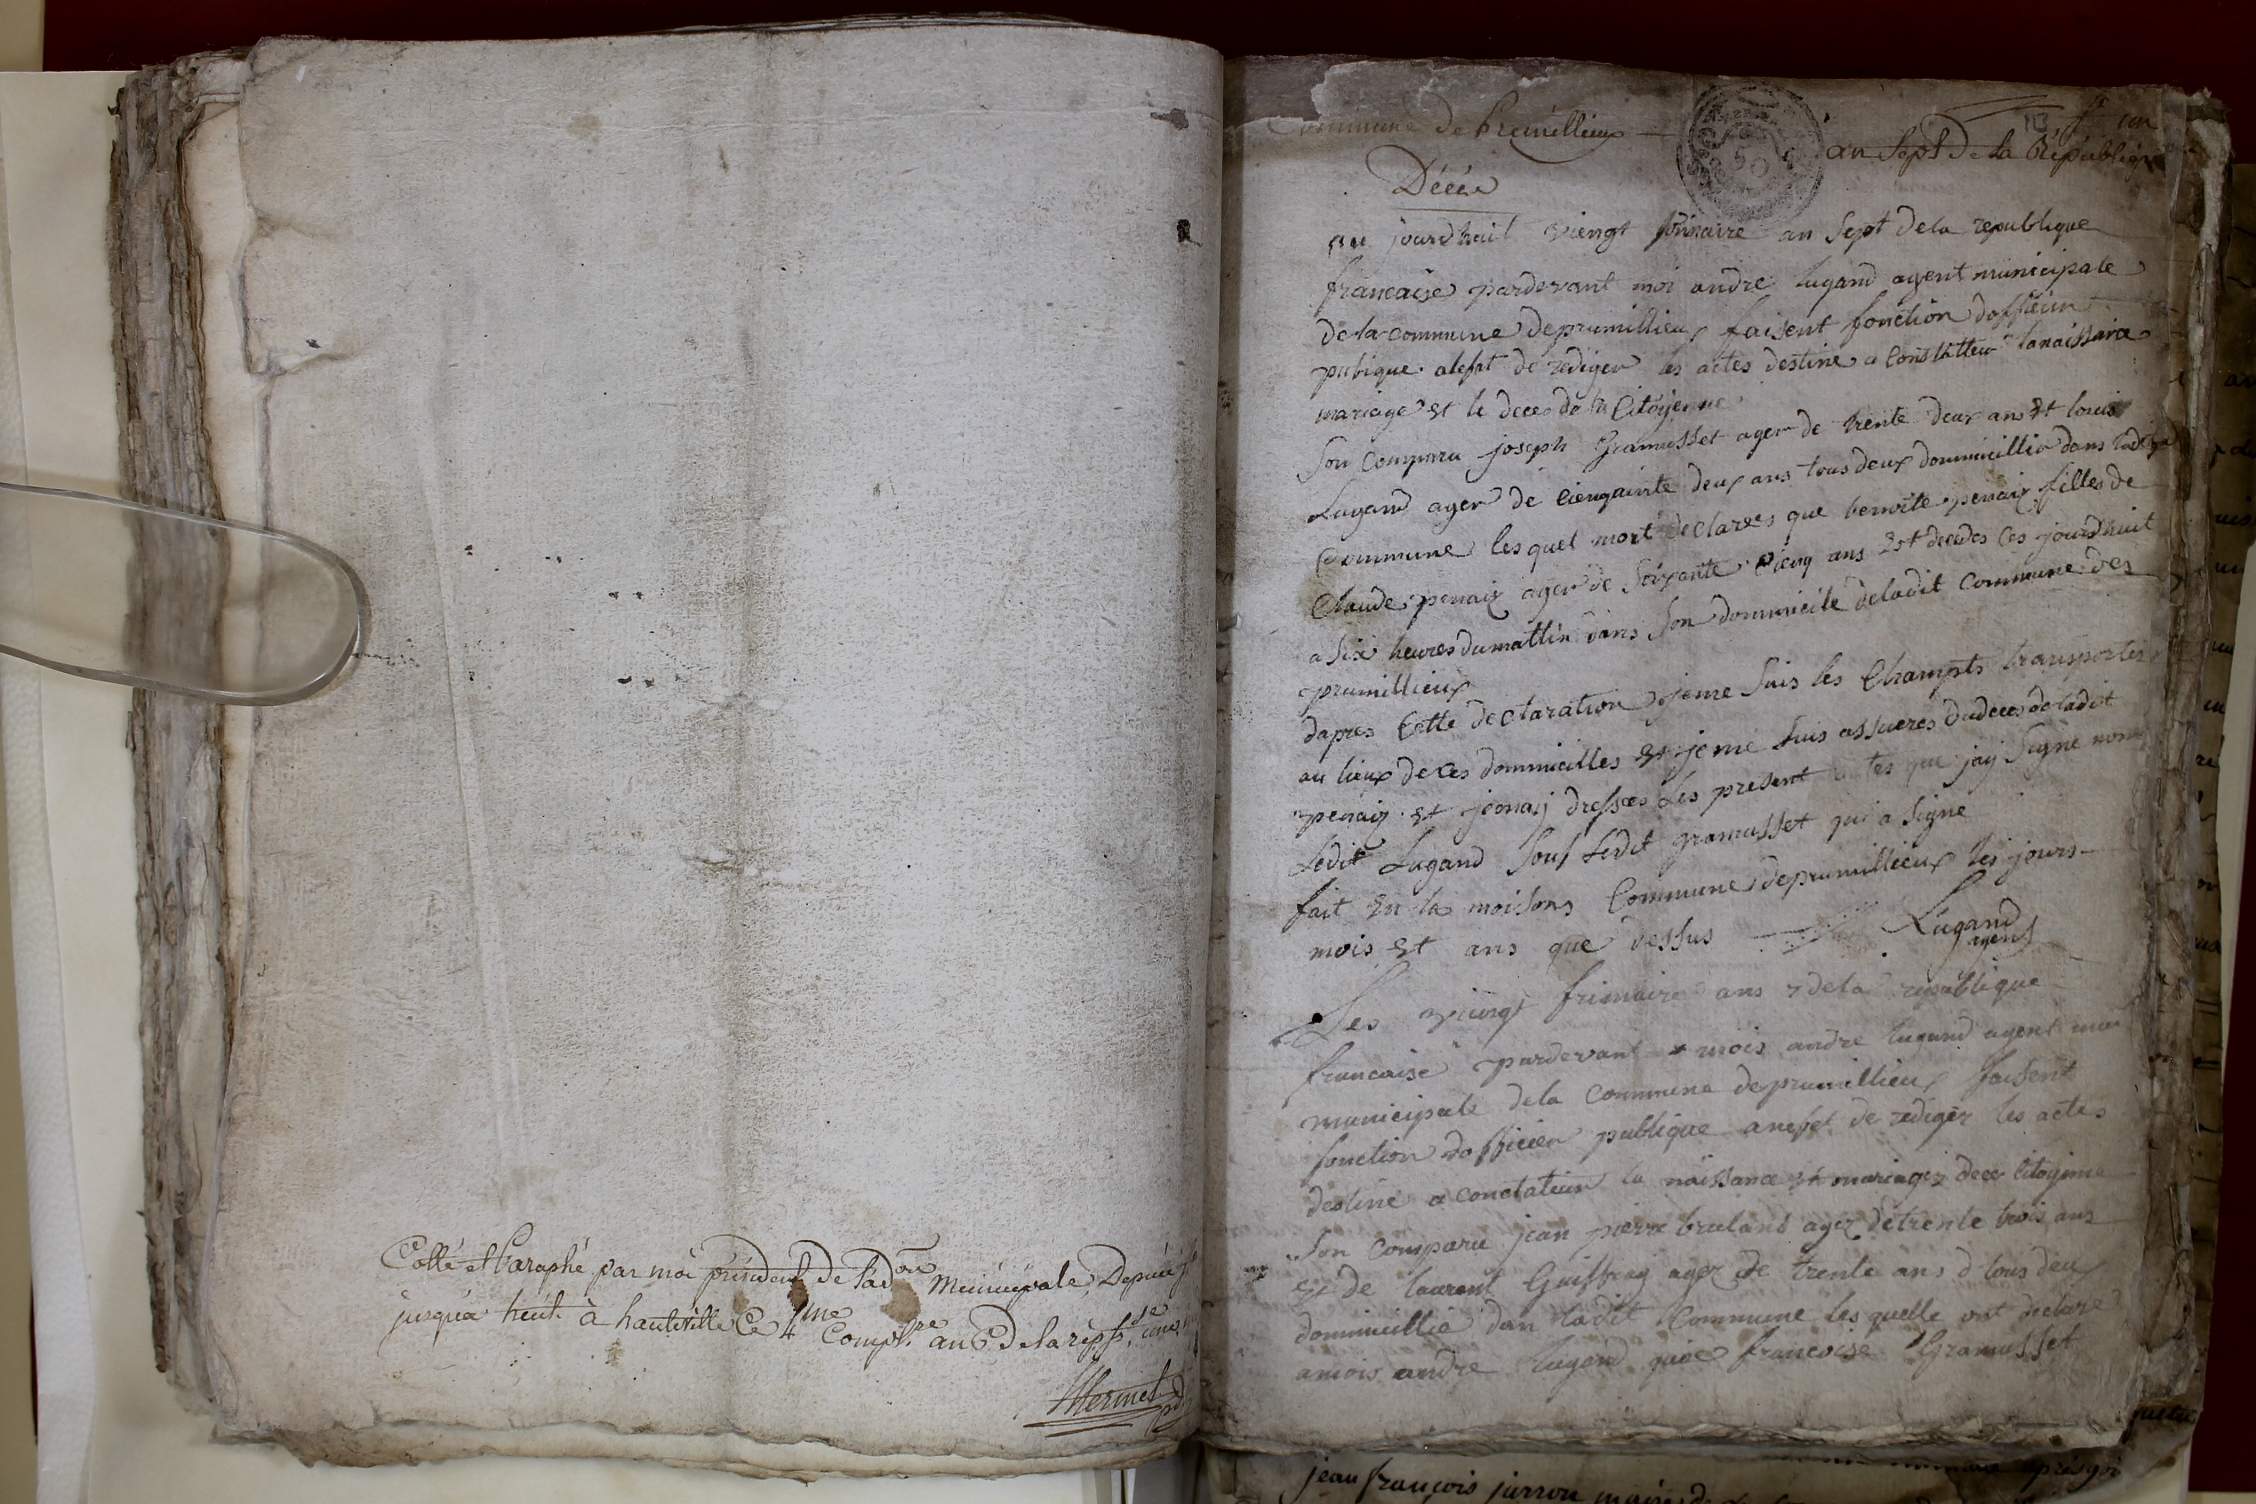 Cotté et Paraphé par moi président de l'ad.on Municipale, Depuis
jusqu'a huit à hauteville Ce 4.me Compl.re an 6 de la rép. f.se une
Mermet pd.
Commune de Prémillieux
an Sept de la République
un
113
50
Décéé
au jourdhuit viengt frimaire an Sept de la republique
francaise pardevant moi andre lugand agent municipale
de la commune de prumillieux faisent fonction dofficier
pubique alefait de rediger les actes destine a Constatteur la naissance
mariage et le deces de Citoyenne
Son Comparu joseph Gramusset ager de trente deux ans et louis
Lugand ager de cienqainte deux ans tous deux dommicillie dans ladite
Commune lesquel mont declares que benoite penaix filles de
Claude penaix ager de Soixante cienq ans est decedes Ces jourdhuit
a Six heures du mattin dans Son dommicile de ladit commune des
prumillieux
dapres Cette declaration jeme Suis les Champts transporter
au lieux de ces dommicilles et jeme Suis assueres du deces de ladit
penaix et jenaij dresses les present actes que jaij Signe non
Ledit Lugand Sous Ledit gramusset qui a Signe
fait en la moisons Commune de prumillieux les jours
mois et ans que dessus
Lugand
agent
Les viengt frimaire ans 7 de la republique
francaise pardevant mois andre lugand agent mu
municipale de la commune de prumillieux faisent
fonction dofficier publique anefet de rediger les actes
destine a constateur la naissance et mariagez deces Citoyenne
Son comparu jean pierre bruland agez de trente trois ans
et de laurent Guiffrey agez de trente ans d tous deux
dommicillie dan ladit Commune lesquelle ont declare
amois andre lugand que francoise Gramusset
jean françois jarron maire de